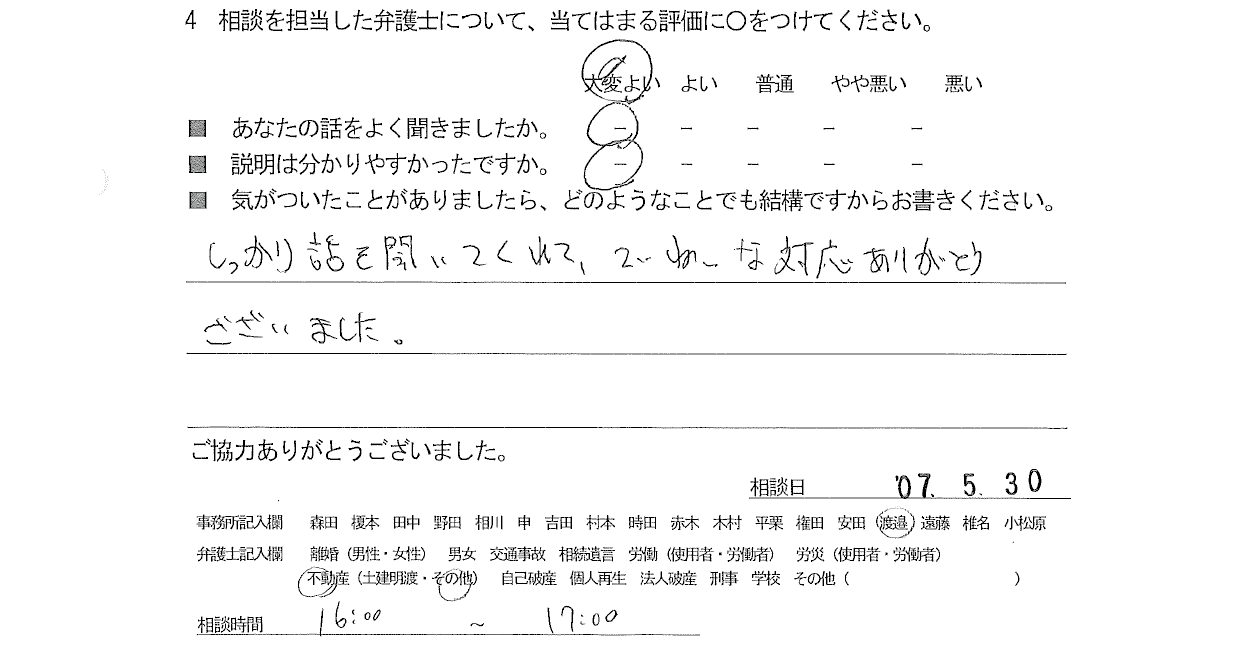 4 相談を担当した弁護士について、当てはまる評価に○をつけてください。
大変よい よい 普通 やや悪い 悪い
■ あなたの話をよく聞きましたか。 － － － － －
■ 説明は分かりやすかったですか。 － － － － －
■ 気がついたことがありましたら、どのようなことでも結構ですからお書きください。
しっかり話を聞いてくれて、ていねいな対応ありがとう
ございました。
ご協力ありがとうございました。
相談日 '07. 5. 30
事務所記入欄 森田 榎本 田中 野田 相川 申 吉田 村本 時田 赤木 木村 平栗 権田 安田 渡邉 遠藤 椎名 小松原
弁護士記入欄 離婚（男性・女性） 男女 交通事故 相続遺言 労働（使用者・労働者） 労災（使用者・労働者）
不動産（土建明渡・その他） 自己破産 個人再生 法人破産 刑事 学校 その他（ ）
相談時間 16:00 ～ 17:00